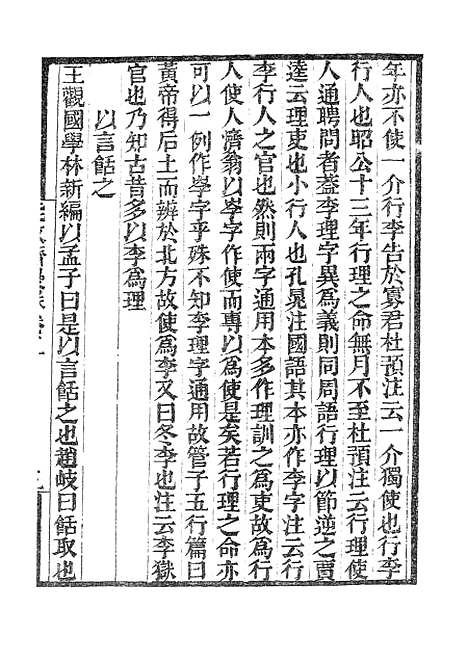 年亦不使一介行李告於寡君杜預注云一介獨使也行李
行人也昭公十三年行理之命無月不至杜預注云行理使
人通聘問者蓋李理字異為義則同周語行理以節逆之賈
逵云理吏也小行人也孔晁注國語其本亦作李字注云行
李行人之官也然則兩字通用本多作理訓之為吏故為行
人使人濟翁以岑字作使而專以為使是矣若行理之命亦
可以一例作岑字乎殊不知李理字通用故管子五行篇曰
黃帝得后土而辨於北方故使為李又曰冬李也注云李獄
官也乃知古昔多以李為理
以言餂之
王觀國學林新編以孟子曰是以言餂之也趙岐曰餂取也